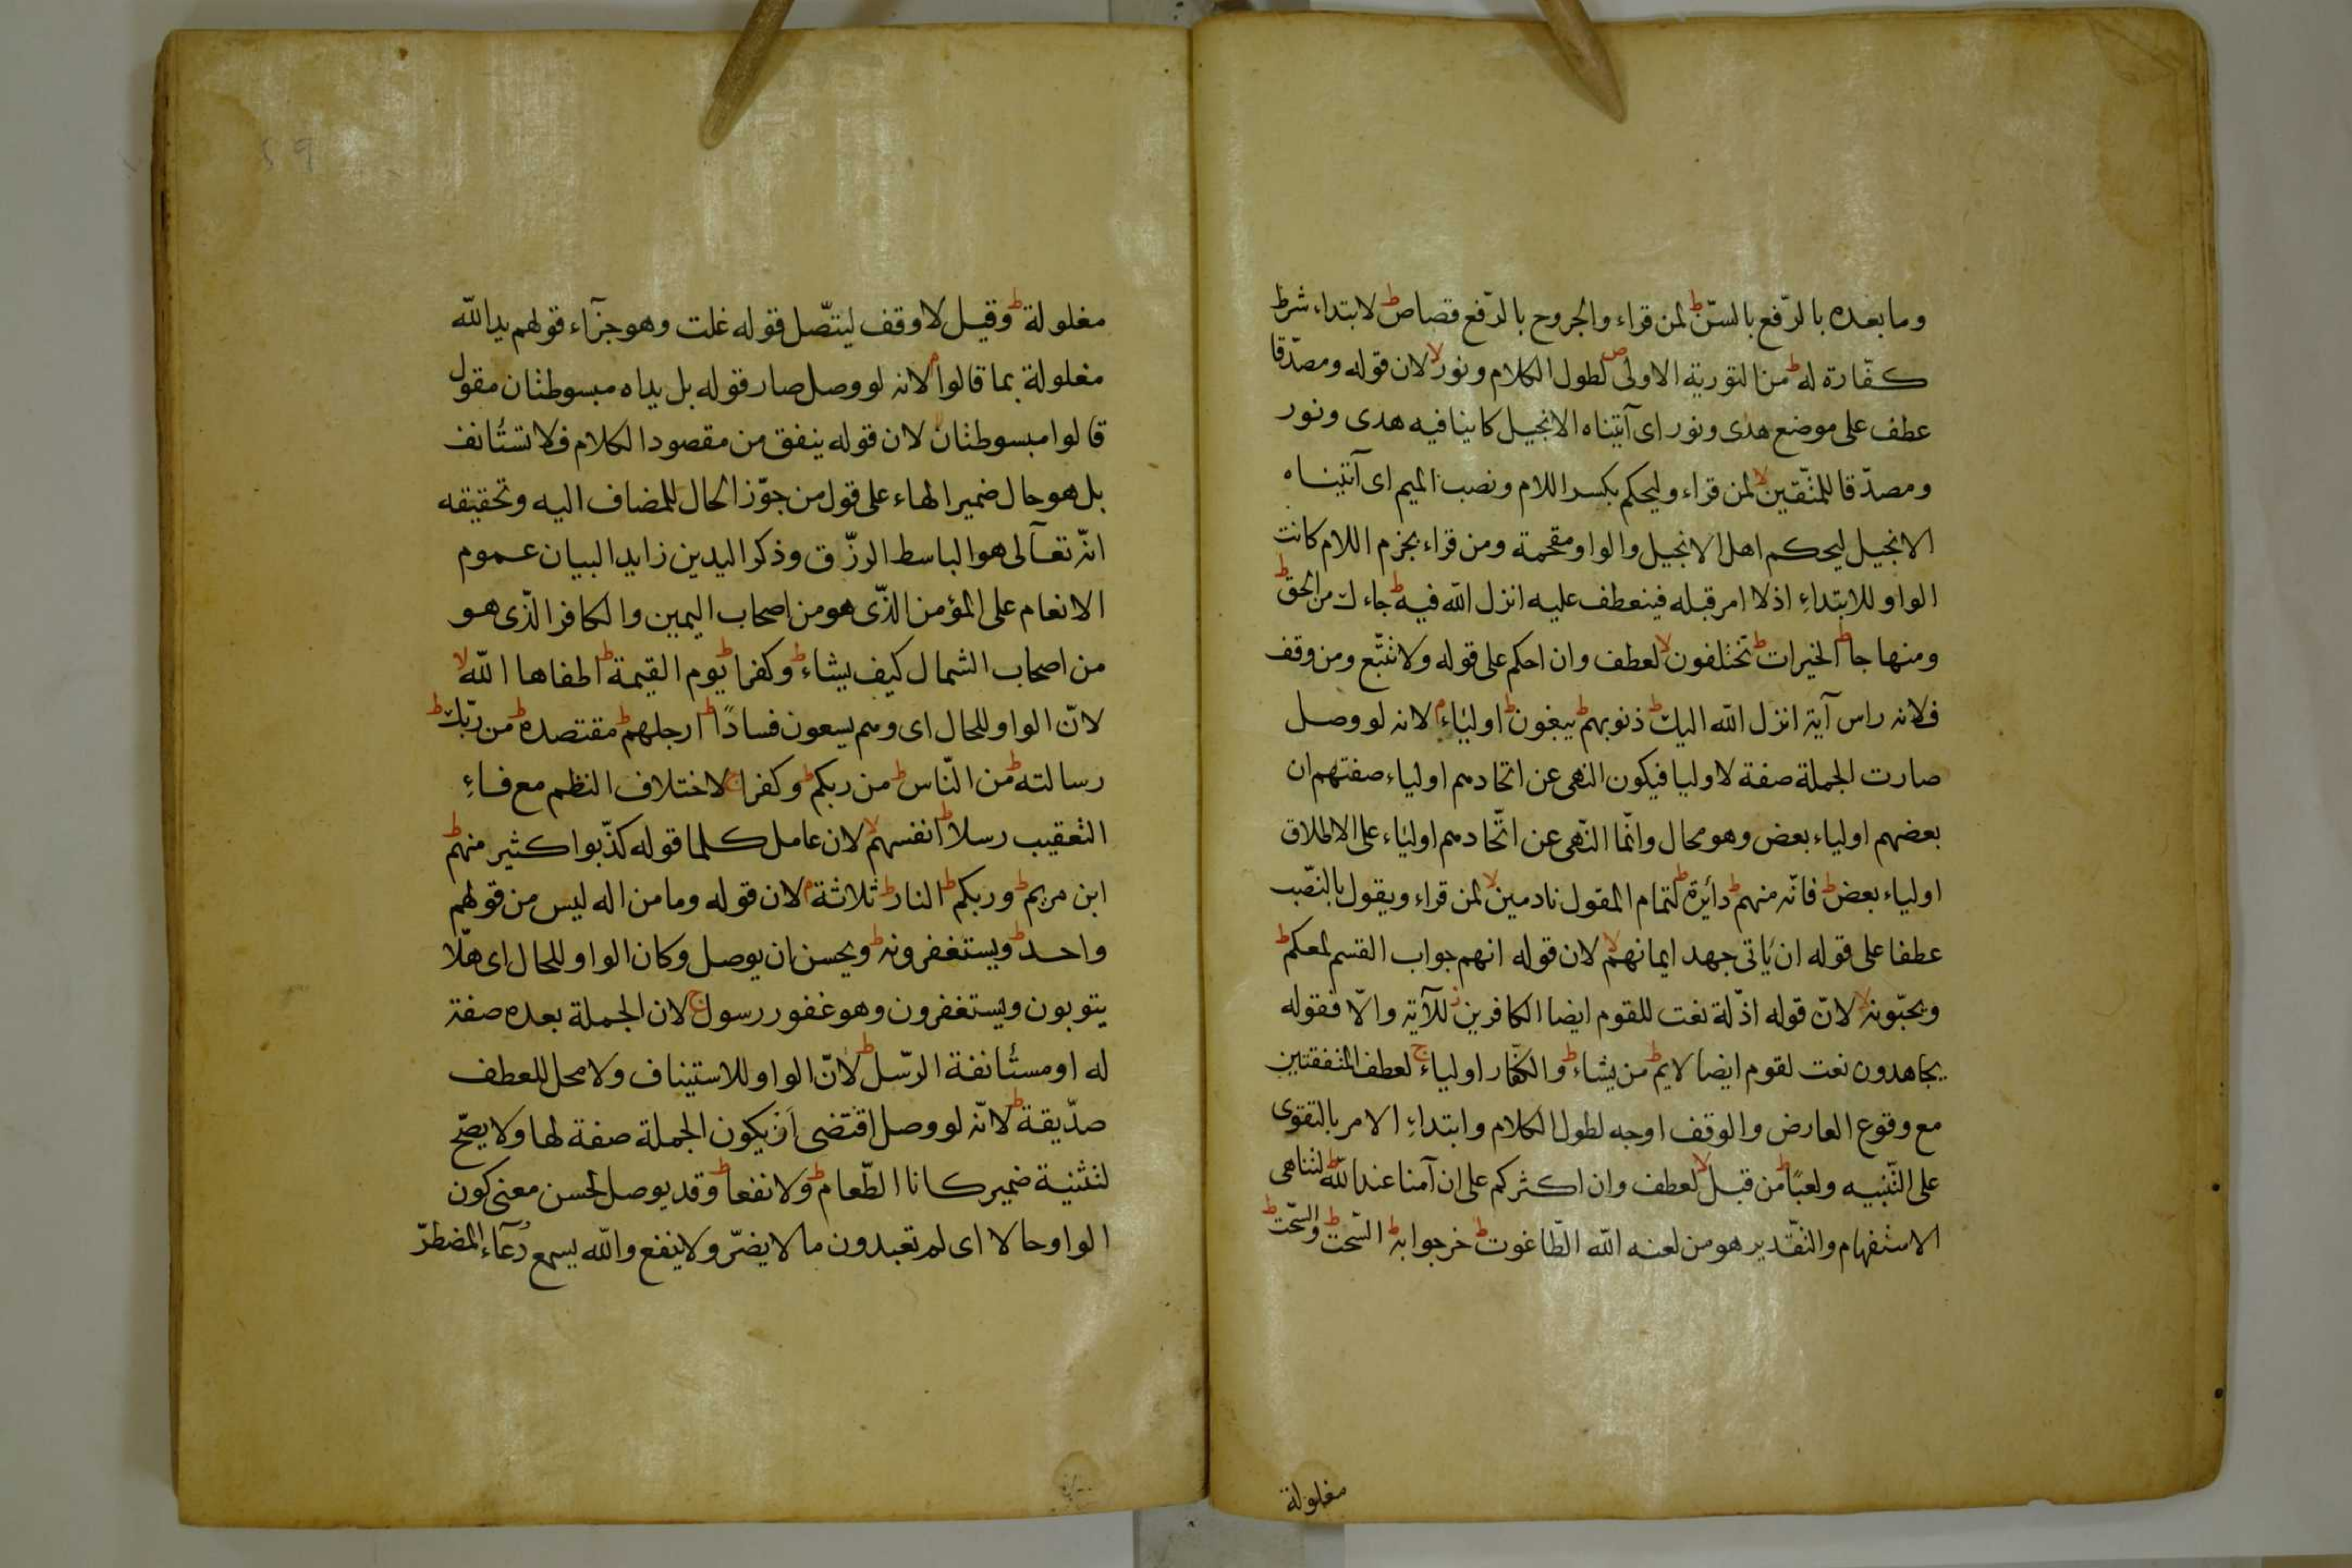 وما بعده بالرّفع بالسنّ ط لمن قراء والجروح بالرّفع قصاص ط لابتداء شرط
كفّارة له ط من التورية الاولى ص لطول الكلام ونور لا لان قوله ومصدّقا
عطف على موضع هدى ونور اى آتيناه الانجيل كاينا فيه هدى ونور
ومصدّقا للمتّقين لا لمن قراء وليحكم بكسر اللام ونصب الميم اى آتيناه
الانجيل ليحكم اهل الانجيل والواو مقحمة ومن قراء بجزم اللام كانت
الواو للابتداء اذ لا امر قبله فينعطف عليه انزل الله فيه ط جاءك من الحق ط
ومنهاجا ط الخيرات ط تختلفون لا لعطف وان احكم على قوله ولا تتبّع ومن وقف
فلانه راس آية انزل الله اليك ط ذنوبهم ط يبغون ط اولياء م لانه لو وصل
صارت الجملة صفة لاوليا فيكون النهى عن اتخادهم اولياء صفتهم ان
بعضهم اولياء بعض وهو محال وانّما النّهى عن اتّخادهم اولياء على الاطلاق
اولياء بعض ط فانّه منهم ط دائرة ط لتمام المقول نادمين لا لمن قراء ويقول بالنصّب
عطفا على قوله ان ياتى جهد ايمانهم لا لان قوله انهم جواب القسم لمعكم ط
ويحبّونه لا لانّ قوله اذّلة نعت للقوم ايضا الكافرين ز للآية والّا فقوله
يجاهدون نعت لقوم ايضا لايم ط من يشاء ط والكفّار اولياء ج لعطف المتفقتين
مع وقوع العارض والوقف اوجه لطول الكلام وابتداء الامر بالتقوى
على التّنبيه ولعبًا ط من قبل لا لعطف وان اكثركم على ان آمنا عند الله ط لتناهى
الاستفهام والتّقدير هو من لعنه الله الطّاغوت ط خرجوا به ط السّحت ط والسّحت ط
مغلولة
مغلولة ط وقيل لا وقف ليتّصل قوله غلت وهو جزآء قولهم يد الله
مغلولة بما قالوا م لانه لو وصل صار قوله بل يداه مبسوطتان مقول
قالوا مبسوطتان لا لان قوله ينفق من مقصود الكلام فلا تستانف
بل هو حال ضمير الهاء على قول من جوّز الحال للمضاف اليه وتحقيقه
انّه تعآلى هو الباسط الرزّق وذكر اليدين زايد البيان عموم
الانعام على المؤمن الذّى هو من اصحاب اليمين والكافر الذّى هو
من اصحاب الشمال كيف يشاء ط وكفرا ط يوم القيمة ط اطفاها الله لا
لانّ الواو للحال اى وهم يسعون فسادًا ط ارجلهم ط مقتصده ط من ربّك ط
رسالته ط من النّاس ط من ربكم ط وكفرا ج لاختلاف النظم مع فاء
التعقيب رسلا ط انفسهم لا لان عامل كلما قوله كذّبوا كثير منهم ط
ابن مريم ط وربكم ط النار ط ثلاثة م لان قوله وما من اله ليس من قولهم
واحد ط ويستغفرونه ط ويحسن ان يوصل وكان الواو للحال اى هلّا
يتوبون ويستغفرون وهو غفور رسول ج لان الجملة بعده صفة
له او مستأنفة الرّسل ط لانّ الواو للاستيناف ولا محل للعطف
صدّيقة ط لانّه لو وصل اقتضى ان يكون الجملة صفة لها ولا يصحّ
لتثنية ضمير كانا الطّعام ط ولا نفعا ط وقد يوصل لحسن معنى كون
الواو حالا اى لم تعبدون ما لا يضرّ ولا ينفع والله يسمع دعآء المضطرّ